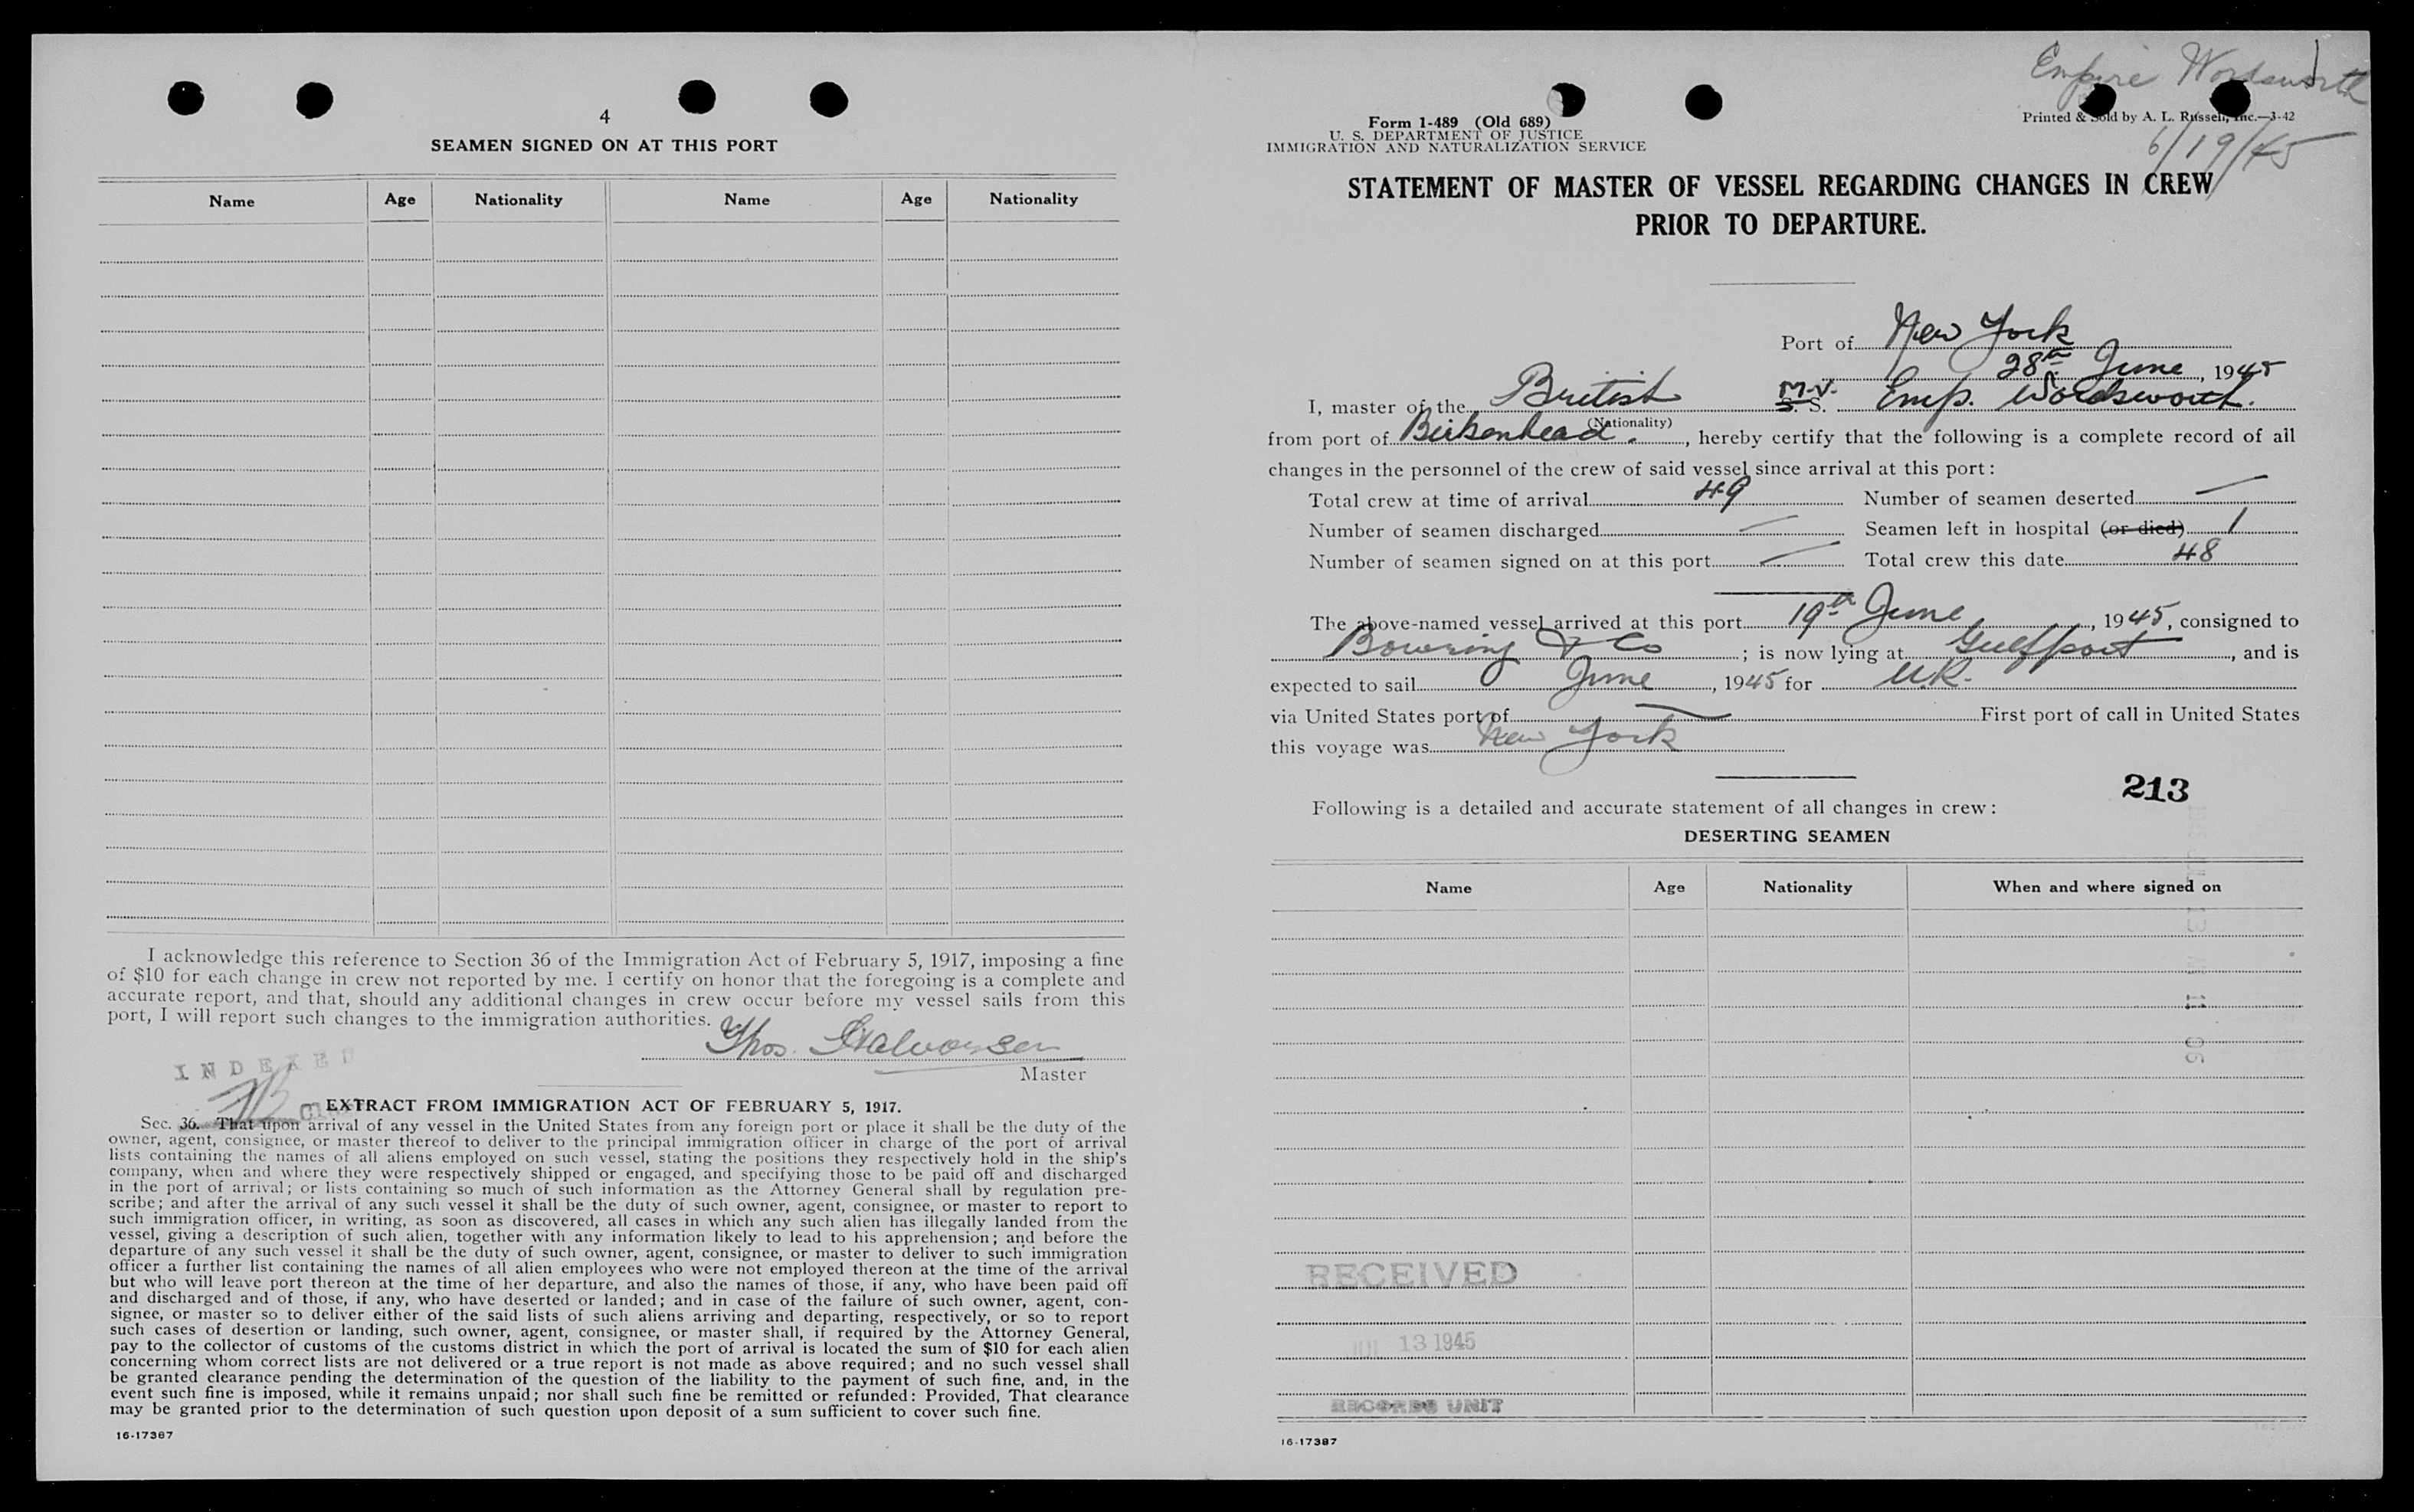 4
SEAMEN SIGNED ON AT THIS PORT
Name Age Nationality Name Age Nationality
I acknowledge this reference to Section 36 of the Immigration Act of February 5, 1917, imposing a fine
of $10 for each change in crew not reported by me. I certify on honor that the foregoing is a complete and
accurate report, and that, should any additional changes in crew occur before my vessel sails from this
port, I will report such changes to the immigration authorities.
Thos. Halvorsen
Master
INDEXED
EXTRACT FROM IMMIGRATION ACT OF FEBRUARY 5, 1917.
Sec. 36. That upon arrival of any vessel in the United States from any foreign port or place it shall be the duty of the
owner, agent, consignee, or master thereof to deliver to the principal immigration officer in charge of the port of arrival
lists containing the names of all aliens employed on such vessel, stating the positions they respectively hold in the ship's
company, when and where they were respectively shipped or engaged, and specifying those to be paid off and discharged
in the port of arrival; or lists containing so much of such information as the Attorney General shall by regulation pre-
scribe; and after the arrival of any such vessel it shall be the duty of such owner, agent, consignee, or master to report to
such immigration officer, in writing, as soon as discovered, all cases in which any such alien has illegally landed from the
vessel, giving a description of such alien, together with any information likely to lead to his apprehension; and before the
departure of any such vessel it shall be the duty of such owner, agent, consignee, or master to deliver to such immigration
officer a further list containing the names of all alien employees who were not employed thereon at the time of the arrival
but who will leave port thereon at the time of her departure, and also the names of those, if any, who have been paid off
and discharged and of those, if any, who have deserted or landed; and in case of the failure of such owner, agent, con-
signee, or master so to deliver either of the said lists of such aliens arriving and departing, respectively, or so to report
such cases of desertion or landing, such owner, agent, consignee, or master shall, if required by the Attorney General,
pay to the collector of customs of the customs district in which the port of arrival is located the sum of $10 for each alien
concerning whom correct lists are not delivered or a true report is not made as above required; and no such vessel shall
be granted clearance pending the determination of the question of the liability to the payment of such fine, and, in the
event such fine is imposed, while it remains unpaid; nor shall such fine be remitted or refunded: Provided, That clearance
may be granted prior to the determination of such question upon deposit of a sum sufficient to cover such fine.
16-17387
Empire Wordsworth
Form 1-489 (Old 689)
U. S. DEPARTMENT OF JUSTICE
IMMIGRATION AND NATURALIZATION SERVICE
Printed & Sold by A. L. Russell, Inc.—3-42
6/19/45
STATEMENT OF MASTER OF VESSEL REGARDING CHANGES IN CREW
PRIOR TO DEPARTURE.
Port of New York
28th June, 1945
I, master of the British M.V. S. S. Emp. Wordsworth.
(Nationality)
from port of Birkenhead., hereby certify that the following is a complete record of all
changes in the personnel of the crew of said vessel since arrival at this port:
Total crew at time of arrival 49 Number of seamen deserted —
Number of seamen discharged — Seamen left in hospital (or died) 1
Number of seamen signed on at this port — Total crew this date 48
The above-named vessel arrived at this port 19th June, 1945, consigned to
Bowring & Co; is now lying at Gulfport, and is
expected to sail June, 1945 for U.K.
via United States port of — First port of call in United States
this voyage was New York
213
Following is a detailed and accurate statement of all changes in crew:
DESERTING SEAMEN
Name Age Nationality When and where signed on
RECEIVED
JUL 13 1945
RECORDS UNIT
16-17387